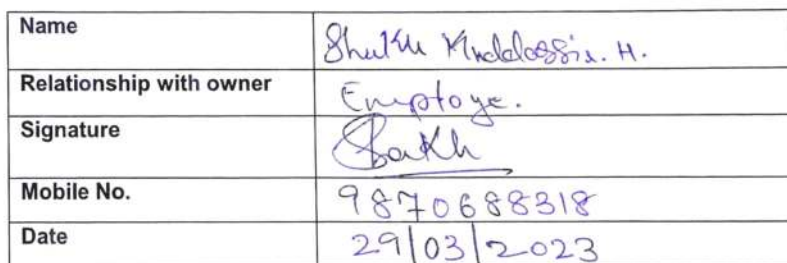 Name Shaikh Muddassir. H.
Relationship with owner Employe.
Signature Shaikh
Mobile No. 9870688318
Date 29/03/2023